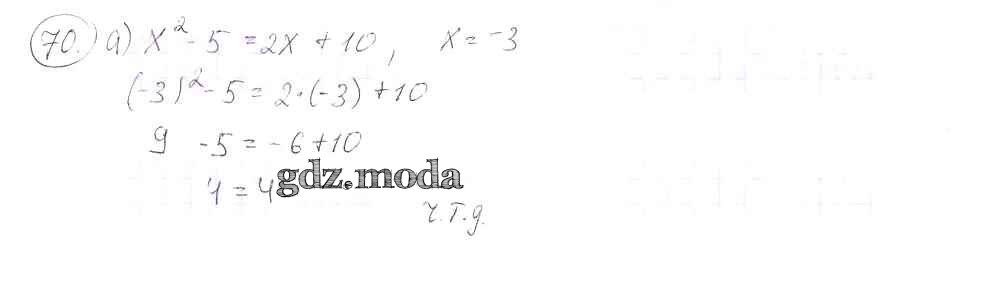 70. а) x² - 5 = 2x + 10, x = -3
(-3)² - 5 = 2·(-3) + 10
9 - 5 = -6 + 10
4 = 4
gdz.moda
ч.т.д.